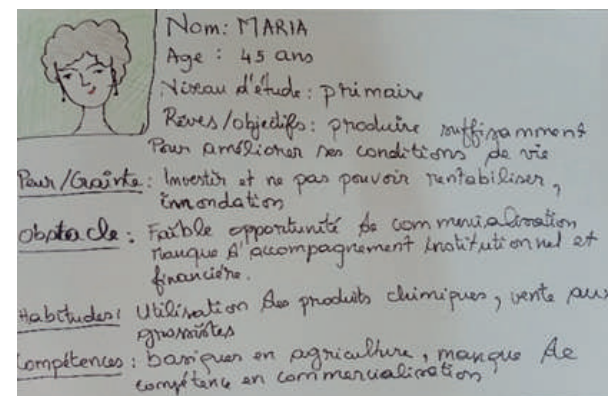 Nom: MARIA
Age : 45 ans
Niveau d'étude: primaire
Rêves/objectifs: produire suffisamment
Pour améliorer ses conditions de vie
Peur/Crainte: Investir et ne pas pouvoir rentabiliser,
innondation
Obstacle: Faible opportunité de commercialisation
manque d'accompagnement institutionnel et
financière.
Habitudes: Utilisation des produits chimiques, vente aux
grossistes
Compétences: basiques en agriculture, manque de
compétence en commercialisation